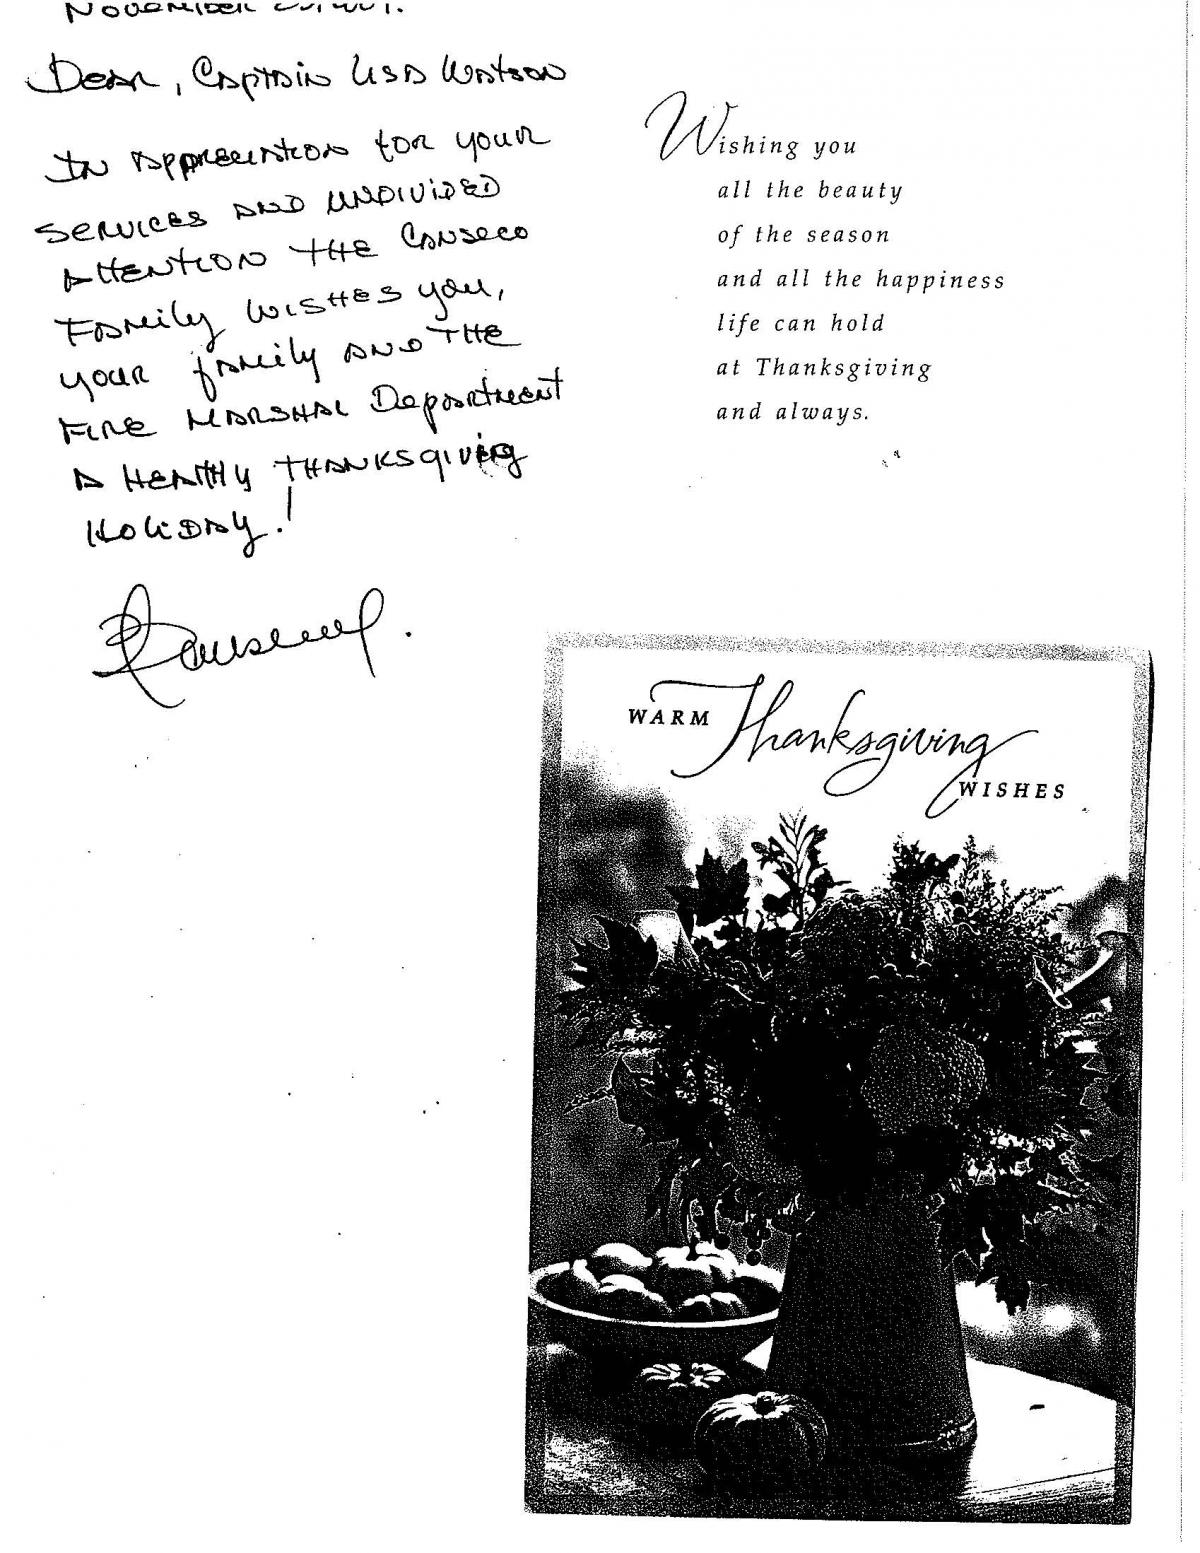 November
Dear, Captain Lisa Watson
In Appreciation for your
services and undivided
attention the Canseco
Family wishes you,
your family and the
Fire Marshal Department
a healthy Thanksgiving
Holiday!
Wishing you
all the beauty
of the season
and all the happiness
life can hold
at Thanksgiving
and always.
WARM Thanksgiving
WISHES